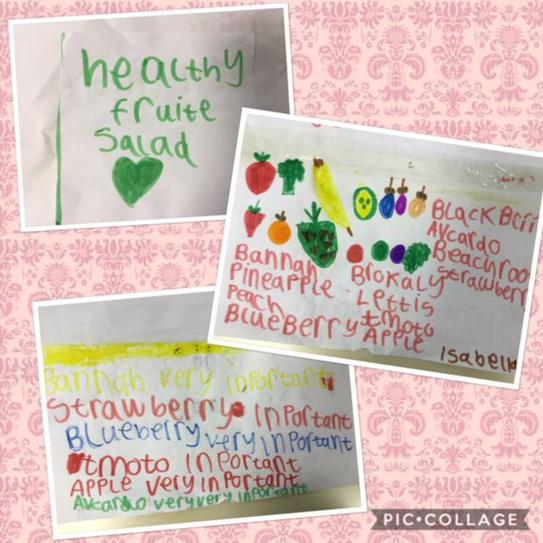 healthy
fruite
Salad
BLACKBerr
Avcardo
Beachroo
Strawberr
Bannah
Pineapple
Peach
BLueBerry
Brokaly
Lettis
tmoto
Apple
Isabella
Bannah very inportant
Strawberry inportant
BLueberry very inportant
tmoto inportant
Apple very inportant
Avcardo veryvery inportant
PIC•COLLAGE